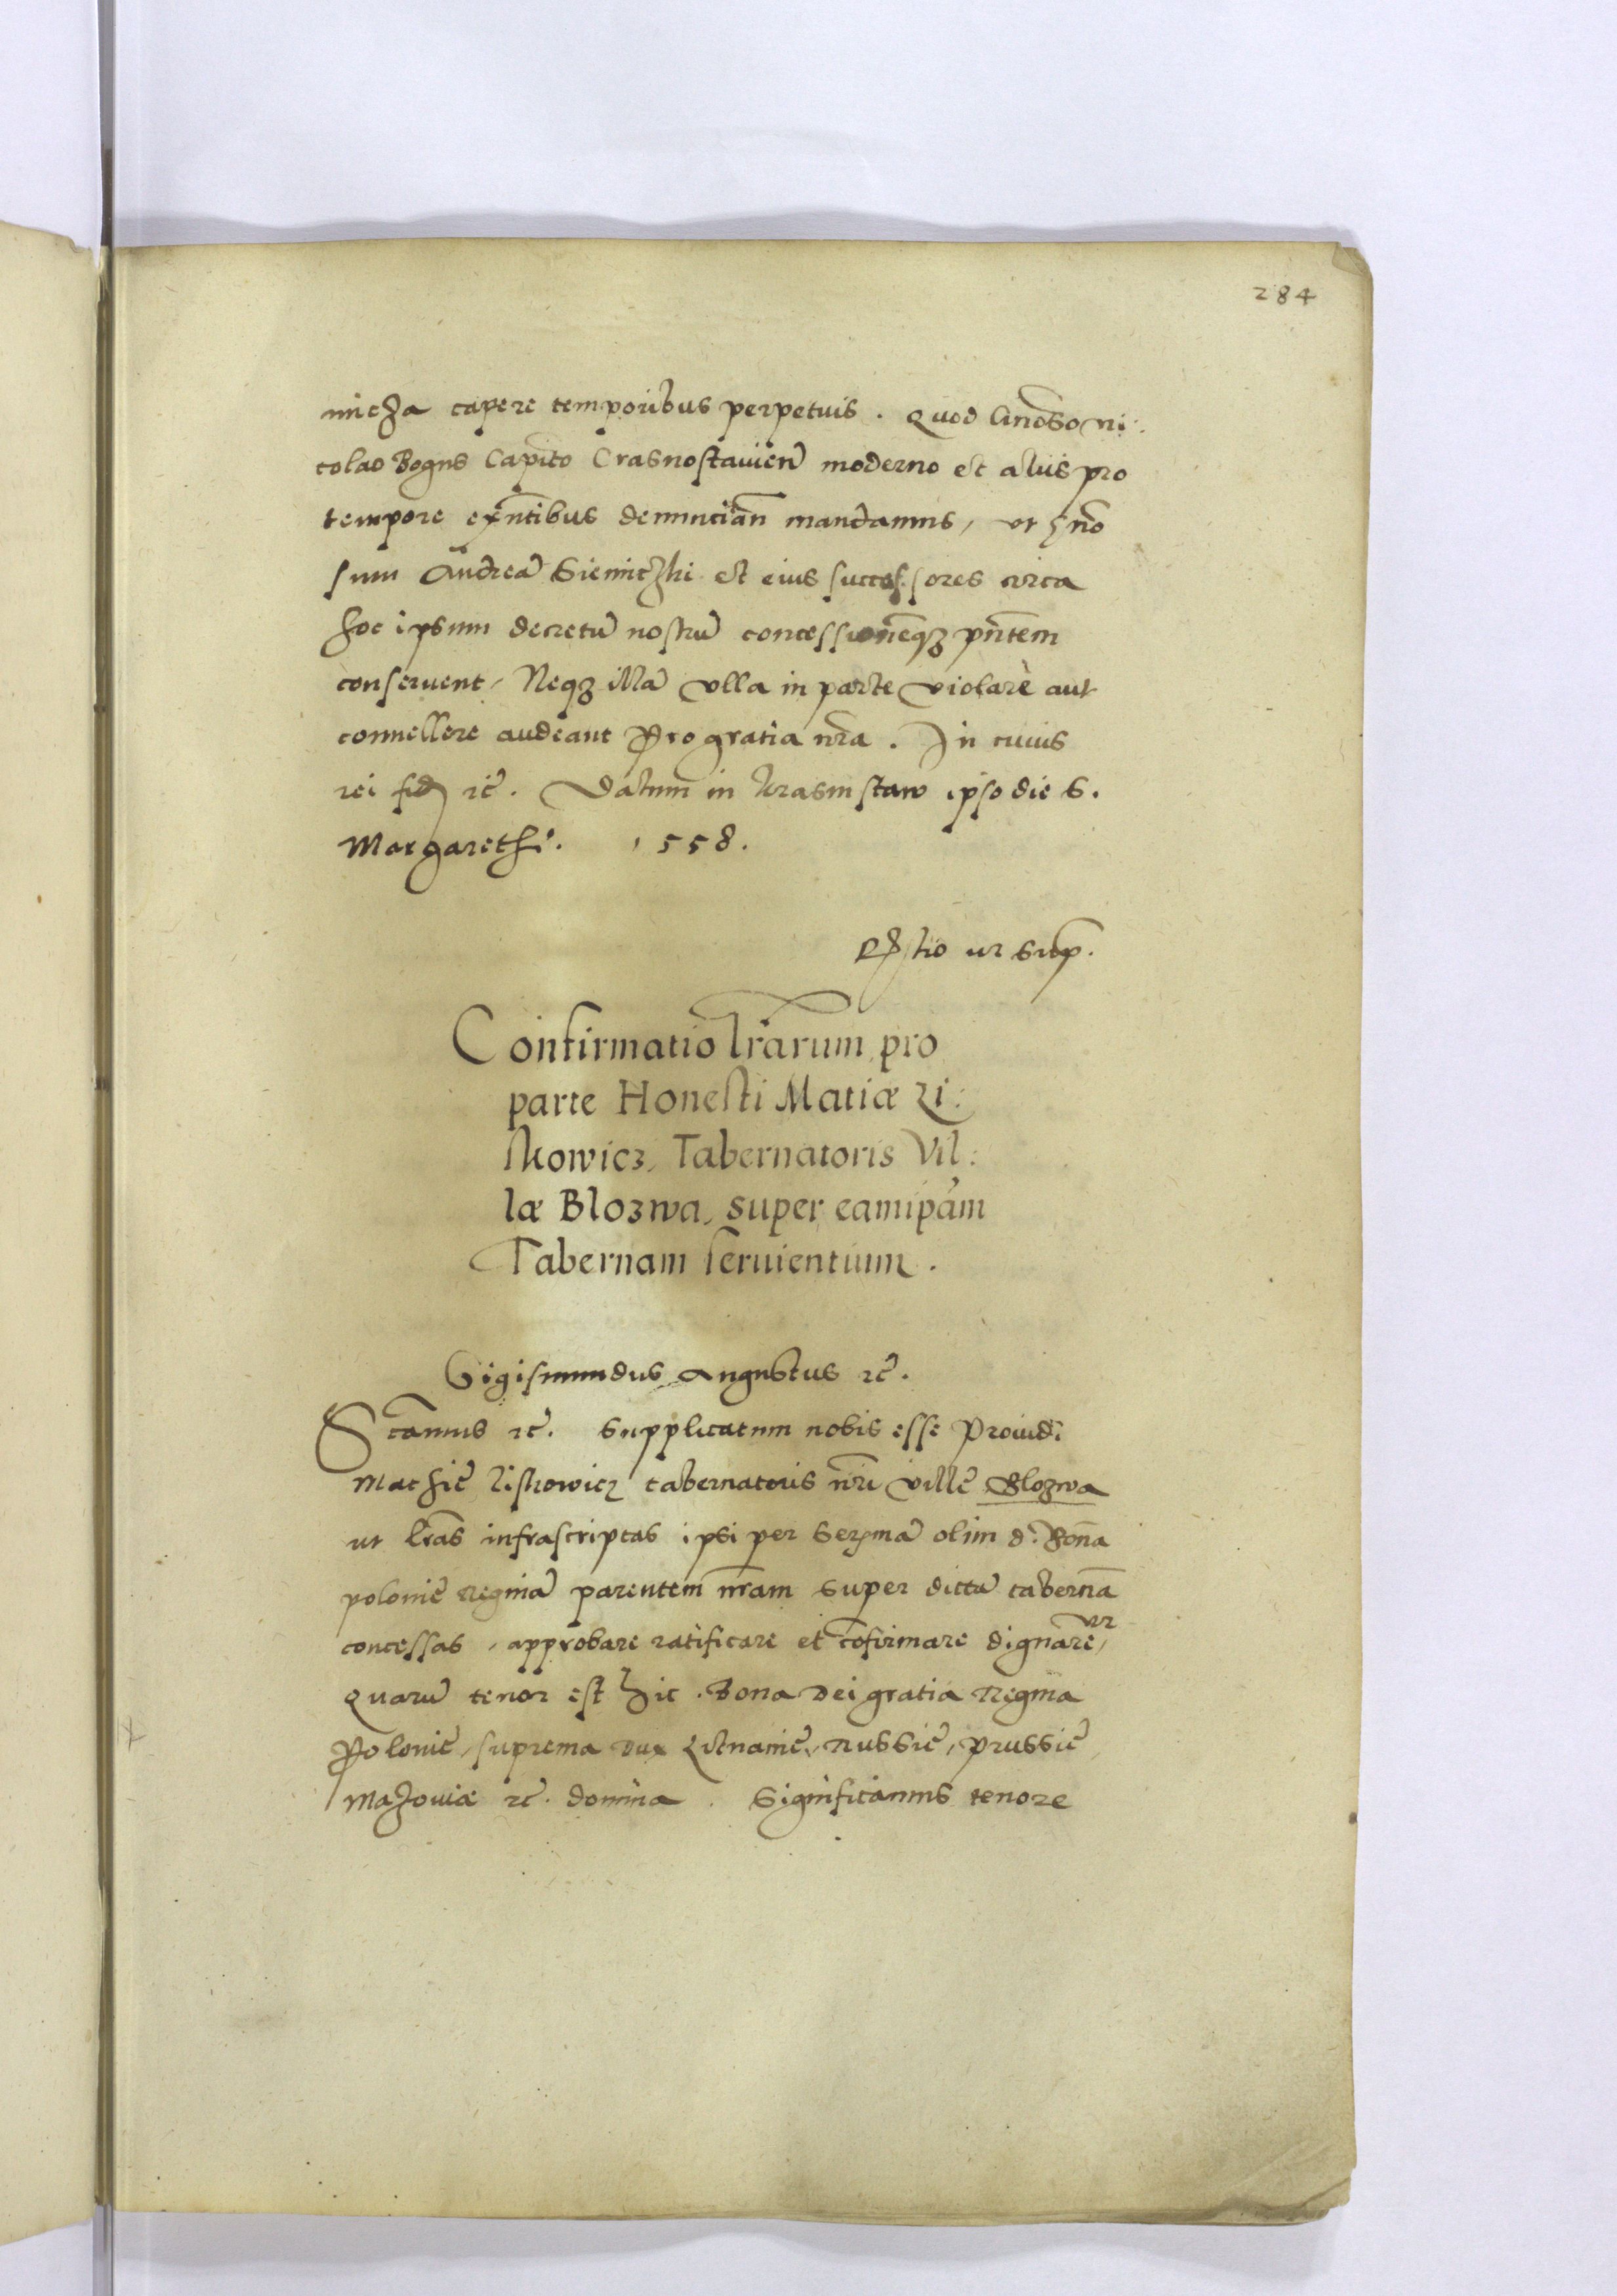 284
micza capere temporibus perpetuis. Quod Gnoso Ni:
colao Bogus Capito Crasnostavien moderno et aliis pro
tempore exntibus denuncian mandamus, ut Gno
sum Andrea Siemiczki et eius successores circa
hoc ipsum decretu nostru concessionemqz pntem
conservent, Neqz illa ulla in parte violare aut
convellere audeant pro gratia nra. In cuius
rei fid rc. Datum in Krasnistaw ipso die S.
Margarethe. 1558.
ut sup.
Confirmatio lrarum pro
parte Honesti Matiæ Zi:
skowicz, Tabernatoris Vil:
læ Blozwa, super eamipam
Tabernam servientium.
Sigismundus Augustus rc.
Scamus rc. Supplicatum nobis esse Providi
Mathie Ziskowicz tabernatoris nri ville Blozwa
ut lras infrascriptas ipsi per Serma olim d. Bona
polonie Regina parentem nram super dicta taberna
concessas, approbare ratificare et cofirmare dignaremur,
Quaru tenor est hic. Bona Dei gratia Regina
Polonie, suprema Dux Lituanie, Russie, Prussie,
Mazovie rc. domina. Significamus tenore